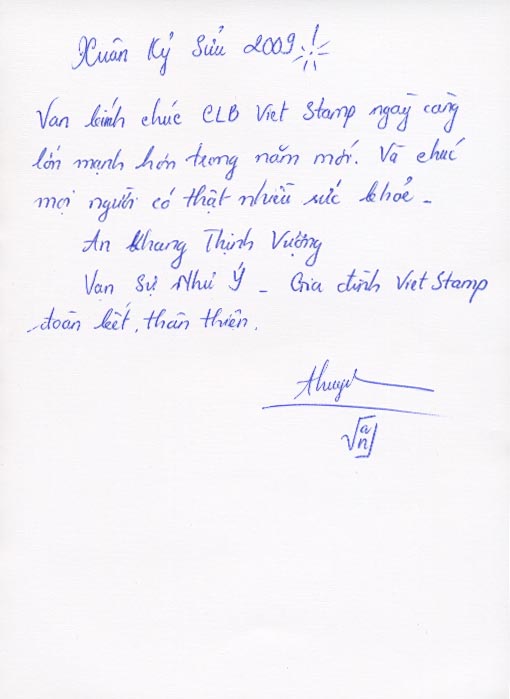 Xuân Kỷ Sửu 2009
Van kính chúc CLB Viet Stamp ngày càng
lớn mạnh hơn trong năm mới. Và chúc
mọi người có thật nhiều sức khoẻ -
An Khang Thịnh Vượng
Vạn Sự Như Ý - Gia đình Viet Stamp
đoàn kết, thân thiện.